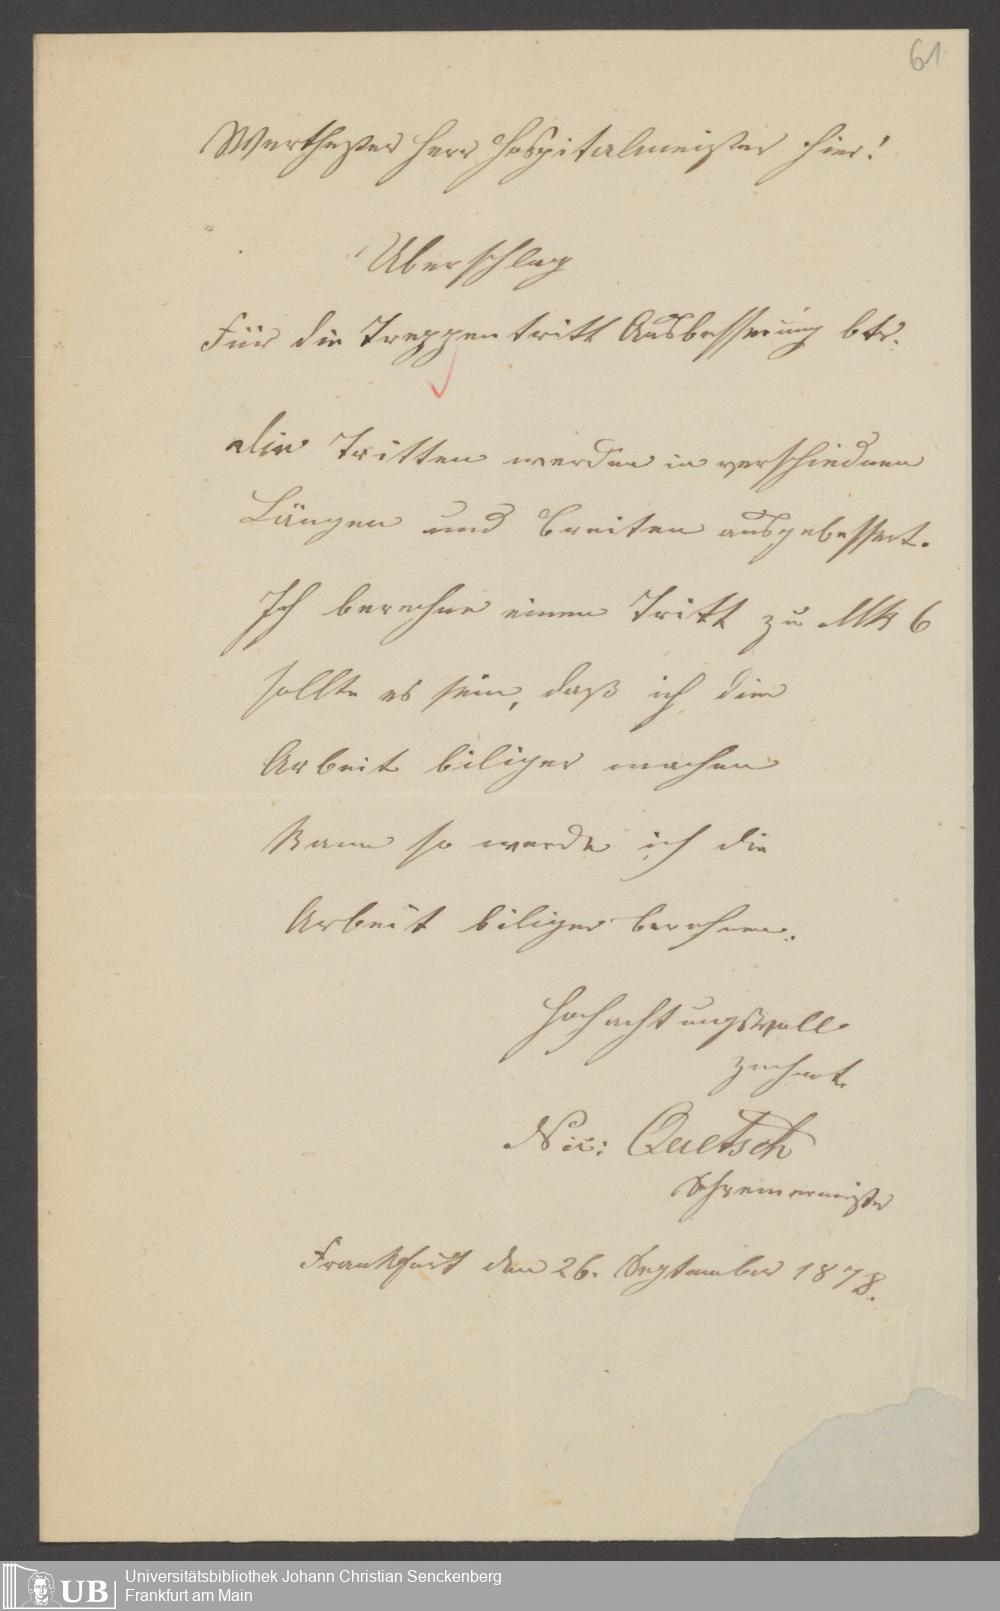 61
Werthester Herr Hospitalmeister hier!
Uberschlag
Für die Treppentritt Ausbesserung btr.
Die Tritten werden in verschiednen
Längen und Breiten ausgebessert.
Ich berechne einen Tritt zu Mk 6
sollte es sein, daß ich die
Arbeit biliger machen
kann so werde ich die
Arbeit biliger berechnen.
Hochachtungsvoll
zeichnet
Nic: Quetsch
Schreinermeister
Frankfurt den 26. September 1878.
UB
Universitätsbibliothek Johann Christian Senckenberg
Frankfurt am Main